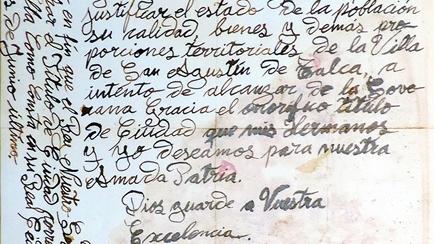 justificar el estado de la población
su calidad, bienes y demás pro
porciones territoriales de la Villa
de San Agustín de Talca, a
intento de alcanzar de la Sove
rana Gracia el título
de Ciudad que mis Hermanos
y yo deseamos para nuestra
Amada Patria.
Dios guarde a Vuestra
Excelencia.
en fin que el Nuestro
el Título de Ciudad
como en su Real
de Junio último